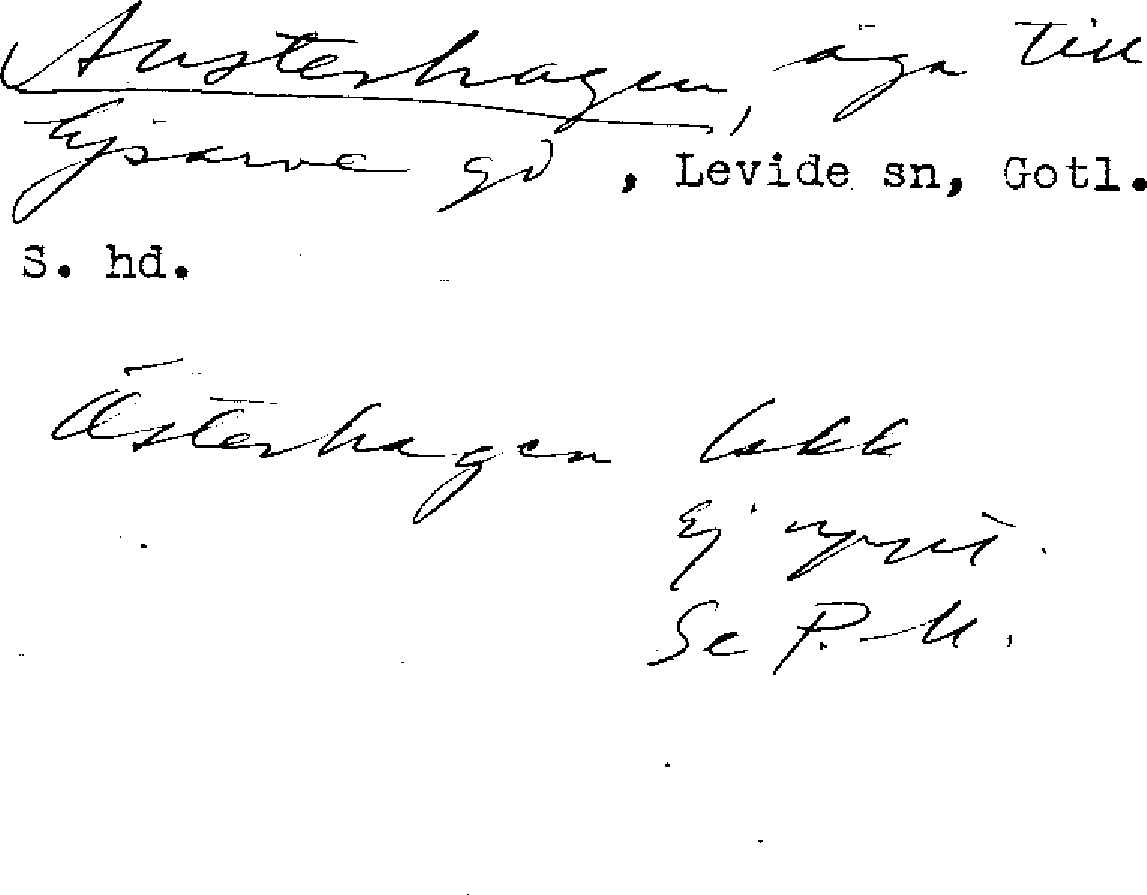 Austerhagen, äga till
Ejsarve gd, Levide sn, Gotl.
S. hd.
Österhagen
Ej
Se P.M.